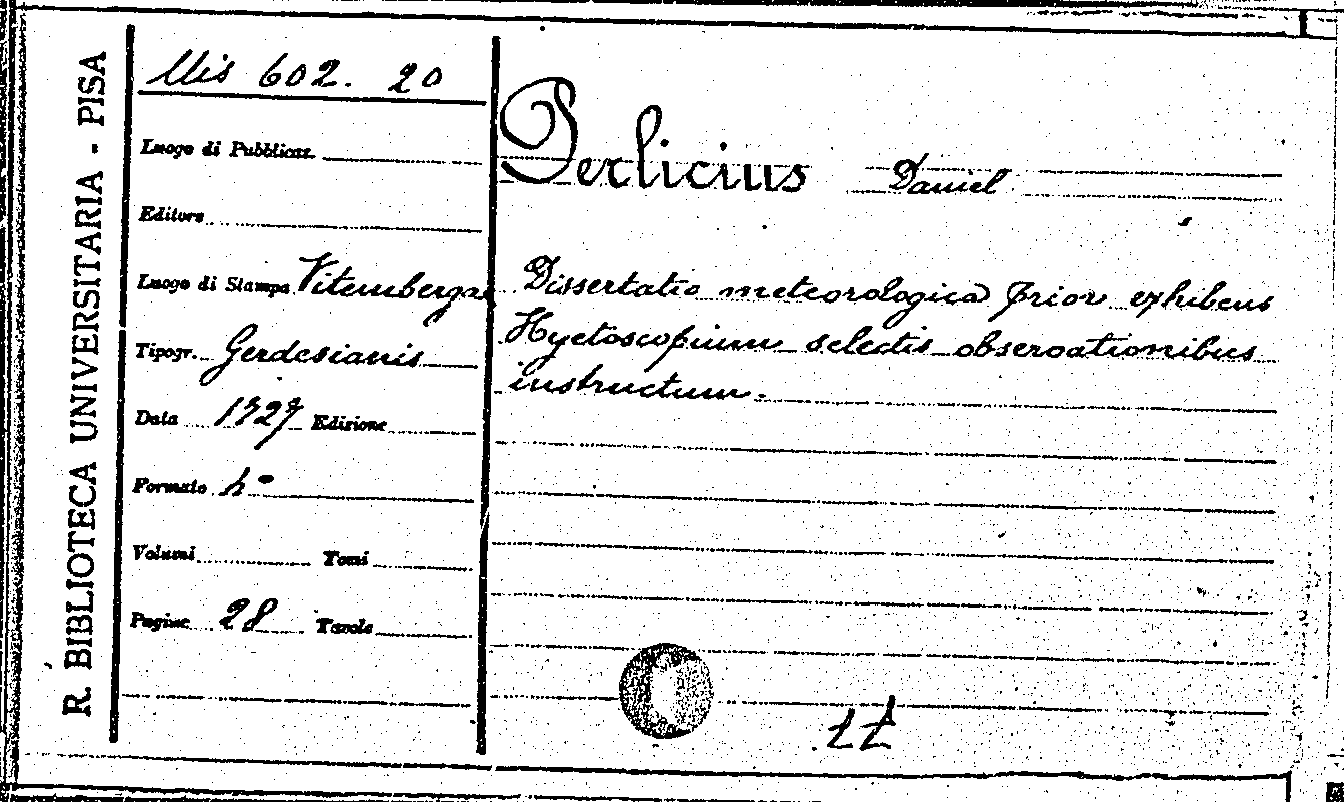 R. BIBLIOTECA UNIVERSITARIA - PISA
Mis 602. 20
Luogo di Pubblicaz.
Editore
Luogo di Stampa Vitembergae
Tipogr. Gerdesianis
Data 1727 Edizione
Formato 4°
Volumi Tomi
Pagine 28 Tavole
Perlicius Daniel
Dissertatio meteorologica prior exhibens
Hyetoscopium selectis observationibus
instructum.